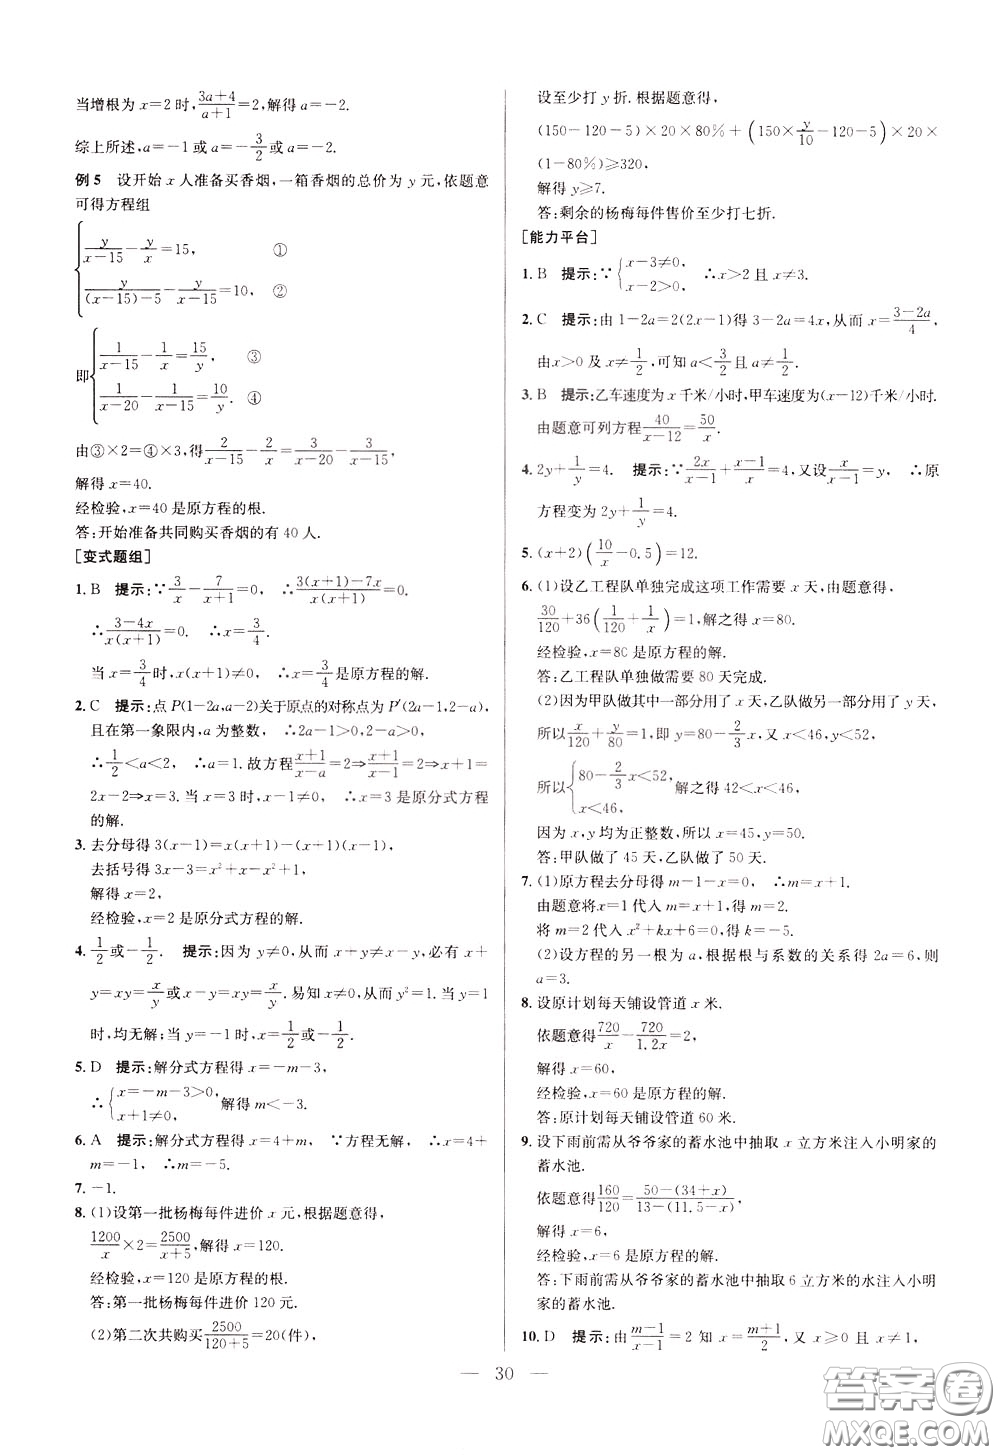 当增根为 x=2 时, (3a+4)/(a+1)=2, 解得 a=-2.
综上所述, a=-1 或 a=-3/2 或 a=-2.
例 5 设开始 x 人准备买香烟,一箱香烟的总价为 y 元,依题意
可得方程组
{ y/(x-15)-y/x=15, ①
y/((x-15)-5)-y/(x-15)=10, ②
即{ 1/(x-15)-1/x=15/y ③
1/(x-20)-1/(x-15)=10/y. ④
由③×2=④×3,得 2/(x-15)-2/x=3/(x-20)-3/(x-15),
解得 x=40.
经检验,x=40 是原方程的根.
答:开始准备共同购买香烟的有 40 人.
[变式题组]
1. B 提示:∵3/x-7/(x+1)=0, ∴(3(x+1)-7x)/(x(x+1))=0.
∴(3-4x)/(x(x+1))=0. ∴x=3/4.
当 x=3/4时,x(x+1)≠0. ∴x=3/4是原方程的解.
2. C 提示:点 P(1-2a,a-2)关于原点的对称点为 P′(2a-1,2-a),
且在第一象限内,a 为整数, ∴2a-1>0,2-a>0,
∴1/2<a<2, ∴a=1. 故方程(x+1)/(x-a)=2⇒(x+1)/(x-1)=2⇒x+1=
2x-2⇒x=3. 当 x=3 时, ∴x=3 是原分式方程
的解.
3. 去分母得 3(x-1)=x(x+1)-(x+1)(x-1),
去括号得 3x-3=x²+x-x²+1,
解得 x=2,
经检验,x=2 是原分式方程的解.
4. 1/2或-1/2. 提示:因为 y≠0,从而 x+y≠x-y,必有 x+
y=xy=x/y或 x-y=xy=x/y. 易知x≠0,从而 y²=1. 当 y=1
时,均无解;当 y=-1 时,x=1/2或 x=-1/2.
5. D 提示:解分式方程得 x=-m-3,
∴{x=-m-3>0,
x+1≠0, 解得 m<-3.
6. A 提示:解分式方程得 x=4+m, ∵方程无解, ∴x=4
+m=-1, ∴m=-5.
7. -1.
8. (1)设第一批杨梅每件进价 x 元,根据题意得,
1200/x×2=2500/(x+5),解得 x=120.
经检验,x=120 是原方程的根.
答:第一批杨梅每件进价 120 元.
(2)第二次共购买2500/(120+5)=20(件),
设至少打 y 折. 根据题意得,
(150-120-5)×20×80%+(150×y/10-120-5)×20×
(1-80%)≥320,
解得 y≥7.
答:剩余的杨梅每件售价至少打七折.
[能力平台]
1. B 提示:∵{x-3≠0,
x-2>0, ∴x>2 且 x≠3.
2. C 提示:由 1-2a=2(2x-1)得 3-2a=4x,从而 x=(3-2a)/4,
由 x>0 及 x≠1/2,可知 a<3/2且 a≠1/2.
3. B 提示:乙车速度为 x 千米/小时,甲车速度为(x-12)千米/小时.
由题意可列方程40/(x-12)=50/x.
4. 2y+1/y=4. 提示:∵2x/(x-1)+(x-1)/x=4,又设x/(x-1)=y, ∴原
方程变为 2y+1/y=4.
5. (x+2)(10/x-0.5)=12.
6. (1)设乙工程队单独完成这项工作需要 x 天,由题意得,
30/120+36(1/120+1/x)=1,解之得 x=80.
经检验,x=80 是原方程的解.
答:乙工程队单独做需要 80 天完成.
(2)因为甲队做其中一部分用了 x 天,乙队做另一部分用了 y天,
所以x/120+y/80=1,即 y=80-2/3x,又 x<46,y<52,
所以{80-2/3x<52,
x<46, 解之得 42<x<46,
因为 x,y 均为正整数,所以 x=45,y=50.
答:甲队做了 45 天,乙队做了 50 天.
7. (1)原方程去分母得 m-1-x=0, ∴m=x+1.
由题意将x=1代入 m=x+1,得 m=2.
将 m=2 代入 x²+kx+6=0,得 k=-5.
(2)设方程的另一根为 a,根据根与系数的关系得 2a=6,则
a=3.
8. 设原计划每天铺设管道 x 米.
依题意得720/x-720/1.2x=2,
解得 x=60,
经检验,x=60 是原方程的解.
答:原计划每天铺设管道 60 米.
9. 设下雨前需从爷爷家的蓄水池中抽取 x 立方米注入小明家的
蓄水池.
依题意得160/120=(50-(34+x))/(13-(11.5-x)),
解得 x=6,
经检验,x=6 是原方程的解.
答:下雨前需从爷爷家的蓄水池中抽取 6 立方米的水注入小明
家的蓄水池.
10. D 提示:由(m-1)/(x-1)=2 知 x=(m+1)/2,又 x≥0 且 x≠1,
— 30 —
答案圈
MXQE.COM